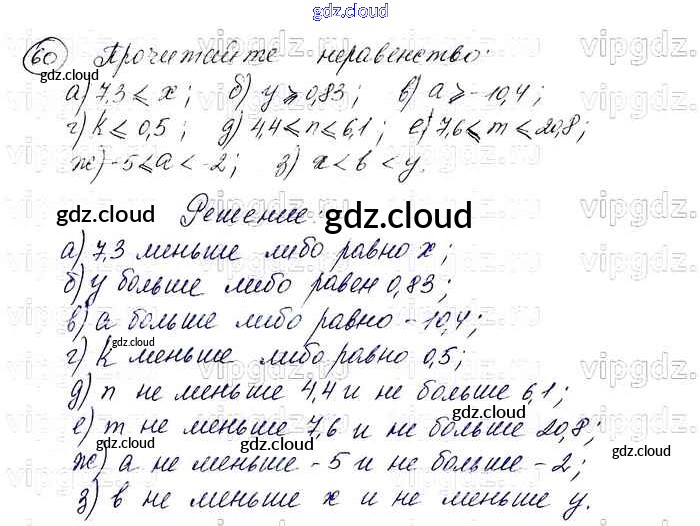 gdz.cloud
60 Прочитайте неравенство:
а) 7,3 ⩽ x; б) y ⩾ 0,83; в) a ⩾ -10,4;
г) k ⩽ 0,5; д) 4,4 ⩽ n ⩽ 6,1; е) 7,6 ⩽ m ⩽ 20,8;
ж) -5 ⩽ a < -2; з) x < в < y.
gdz.cloud Решение: gdz.cloud
а) 7,3 меньше либо равно x;
б) y больше либо равен 0,83;
в) a больше либо равно -10,4;
gdz.cloud
г) k меньше либо равно 0,5;
д) n не меньше 4,4 и не больше 6,1;
gdz.cloud
е) m не меньше 7,6 и не больше 20,8;
gdz.cloud
ж) a не меньше -5 и не больше -2;
gdz.cloud
з) в не меньше x и не меньше y.